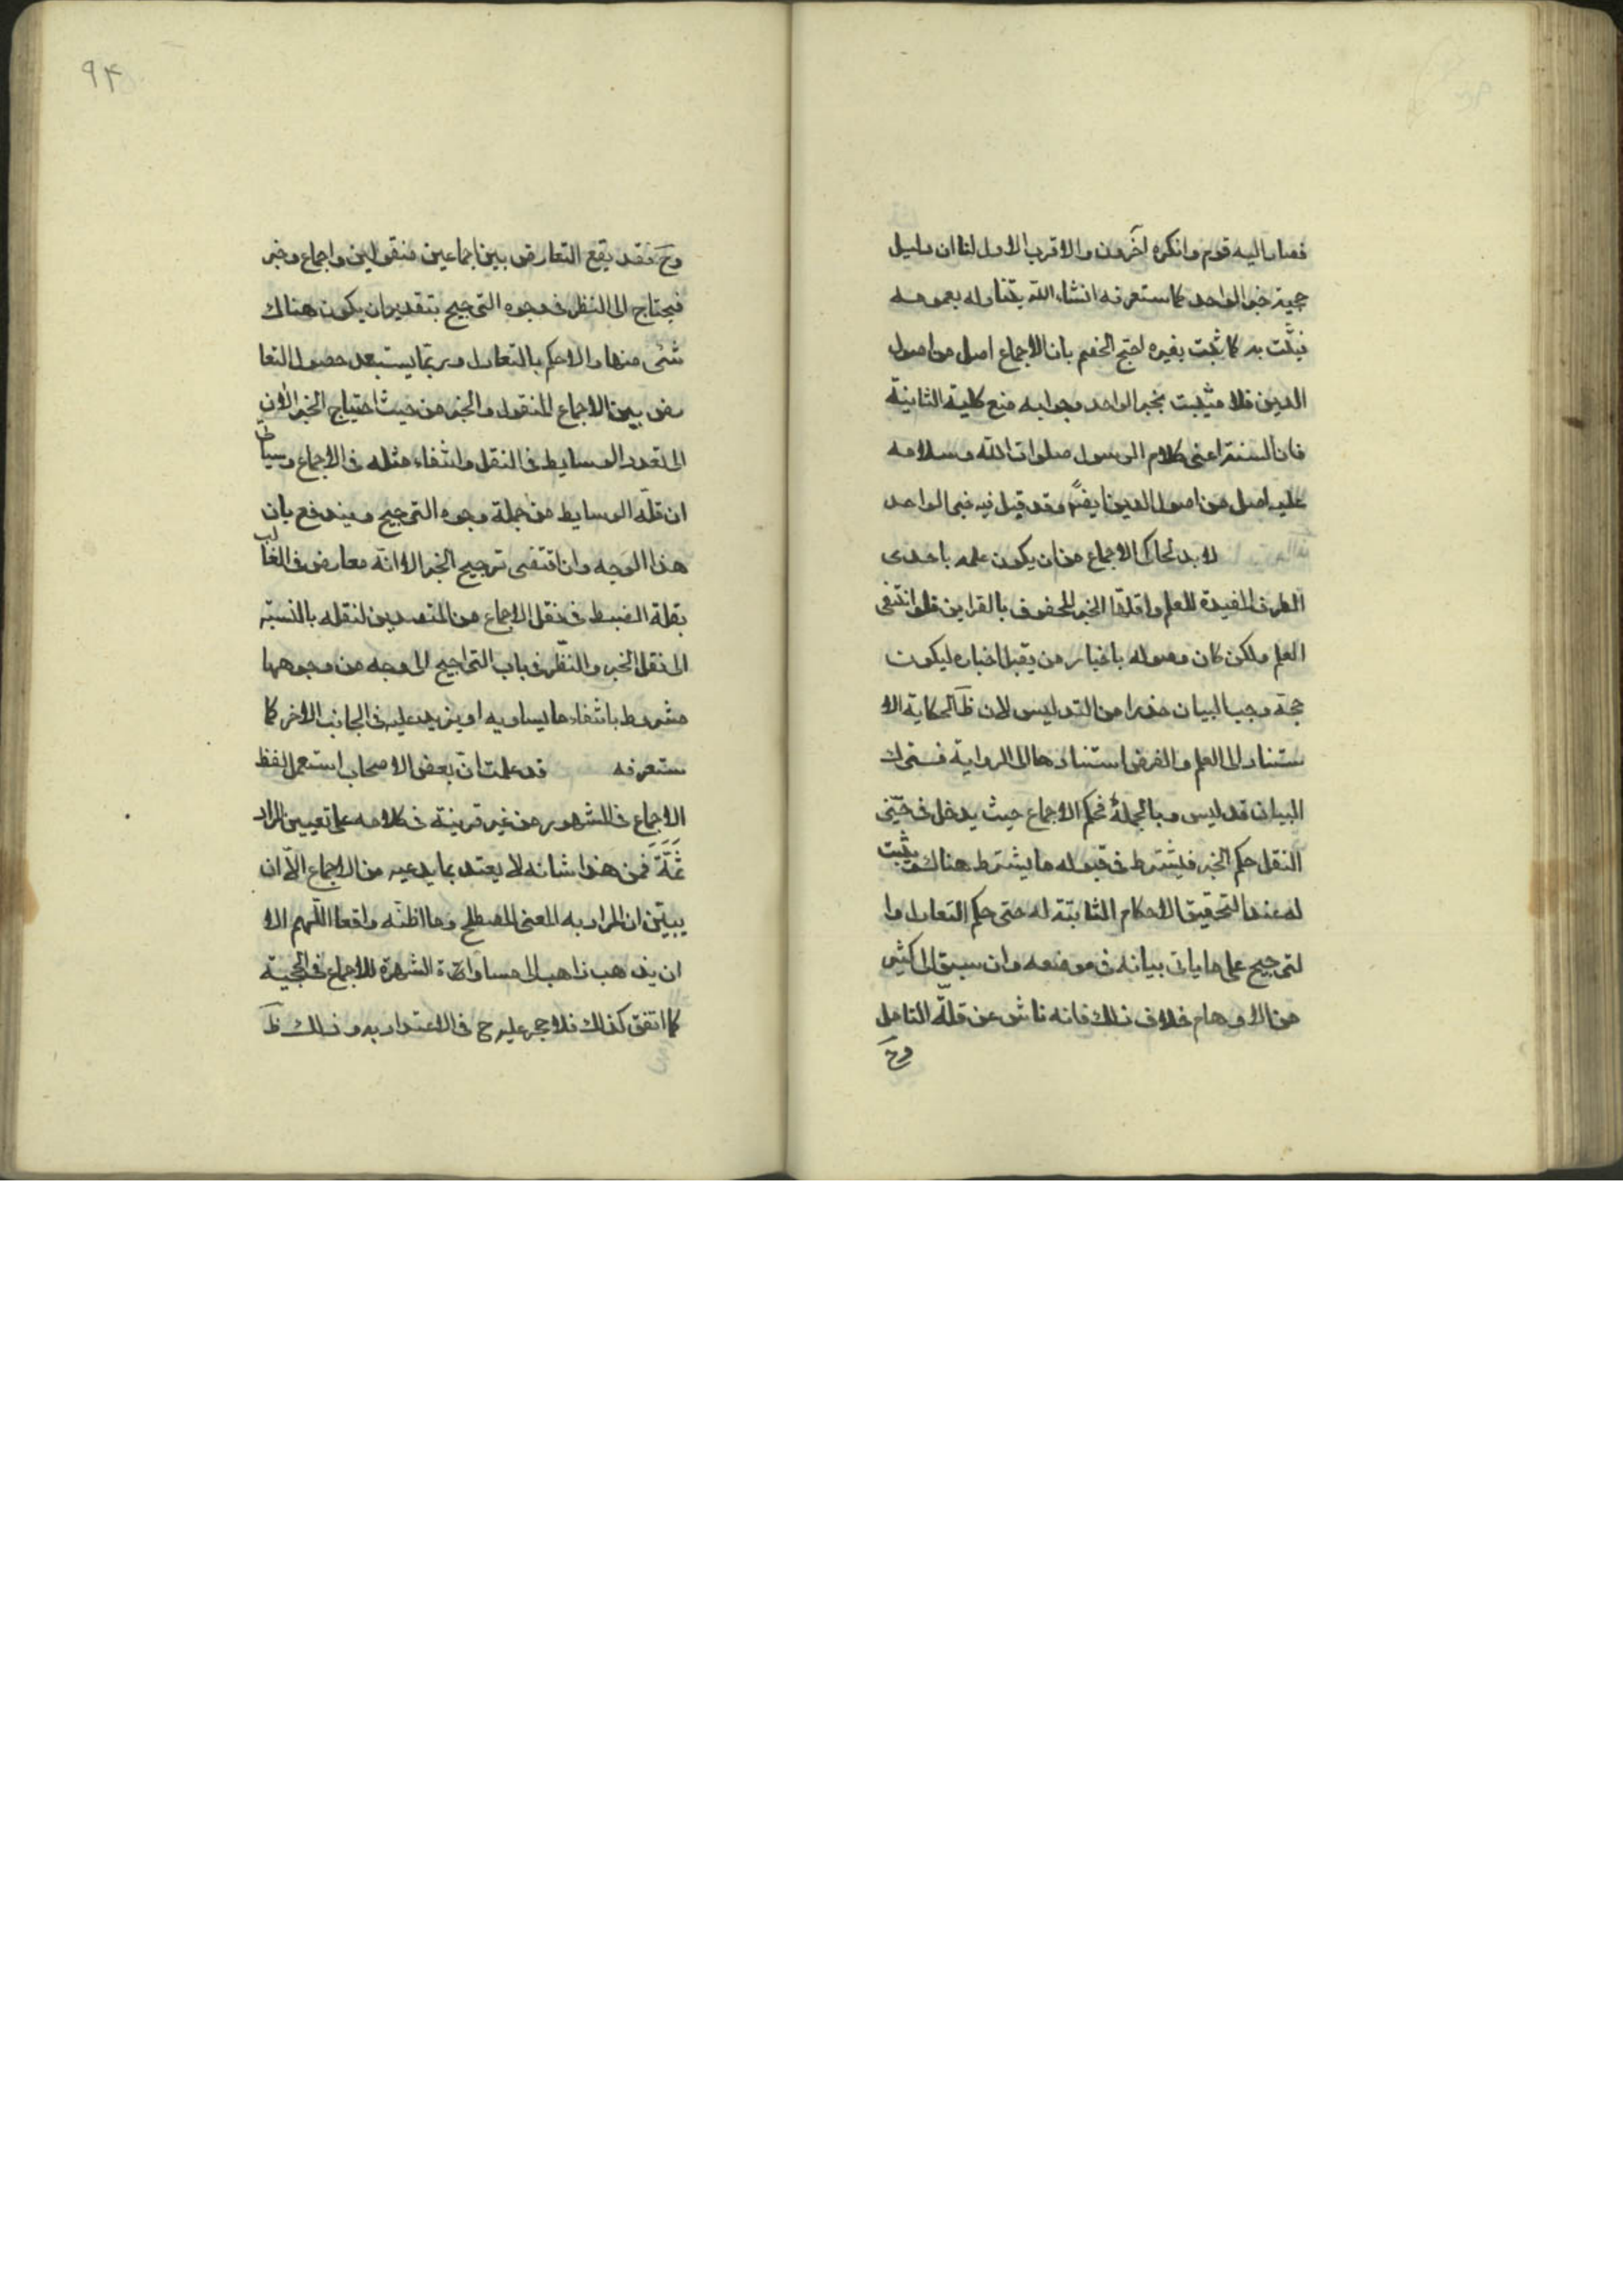 فصار اليه قوم وانكره آخرون والاقرب الاول لنا ان دليل
حجية خبر الواحد كما ستعرفه انشاء الله يتناوله بعمومه
فيثبت به كما يثبت بغيره احتج الخصم بان الاجماع اصل من اصول
الدين فلا يثبت بخبر الواحد وجوابه منع كلية الثانية
فان السنة اعنى كلام الرسول صلوات الله وسلامه
عليه اصل من اصول الدين ايضا وقد قبل فيه خبر الواحد
لا بد لحاكى الاجماع من ان يكون علمه باحدى
الطرق المفيدة للعلم واقلها الخبر المحفوف بالقراين فلو انتفى
العلم ولكن كان وصوله باخبار من يقبل اخباره ليكون
حجة وجب البيان حذرا من التدليس لان ظ الحكاية الا
ستناد الى العلم والفرض استنادها الى الرواية فترك
البيان تدليس وبالجملة فحكم الاجماع حيث يدخل فى حيّز
النقل حكم الخبر فيشترط فى قبوله ما يشترط هناك ويثبت
له عند التحقيق الاحكام الثابتة له حتى حكم التعادل وا
لترجيح على ما ياتى بيانه فى موضعه وان سبق الى كثير
من الاوهام خلاف ذلك فانه ناش عن قلّة التامل
وح
۹۴
وح فقد يقع التعارض بين اجماعين منقولين واجماع وخبر
فيحتاج الى النظر فى وجوه الترجيح بتقدير ان يكون هناك
شئ منها والا حكم بالتعادل وربما يستبعد حصول التعا
رض بين الاجماع المنقول والخبر من حيث احتياج الخبر الان
الى تعدد الوسايط فى النقل وانتفاء مثله فى الاجماع وسياتى
ان قلّة الوسايط من جملة وجوه الترجيح ويندفع بان
هذا الوجه وان اقتضى ترجيح الخبر الا انه معارض فى الغالب
بقلة الضبط فى نقل الاجماع من المتصدين لنقله بالنسبة
الى نقل الخبر والنظر فى باب التراجيح الى وجه من وجوهها
مشروط بانتفاء ما يساويه او يزيد عليه فى الجانب الاخر كما
ستعرفه قد علمت انّ بعض الاصحاب استعمل لفظ
الاجماع فى المشهور من غير قرينة فى كلامه على تعيين المراد
ثمّة فمن هذا شانه لا يعتد بما يدعيه من الاجماع الّا ان
يبيّن ان المراد به المعنى المصطلح وما اظنّه واقعا اللّهم الا
ان يذهب ذاهب الى مساواة الشهرة للاجماع فى الحجية
كما اتفق كذلك فلا حجر عليه ح فى الاعتداد به وذلك ظ